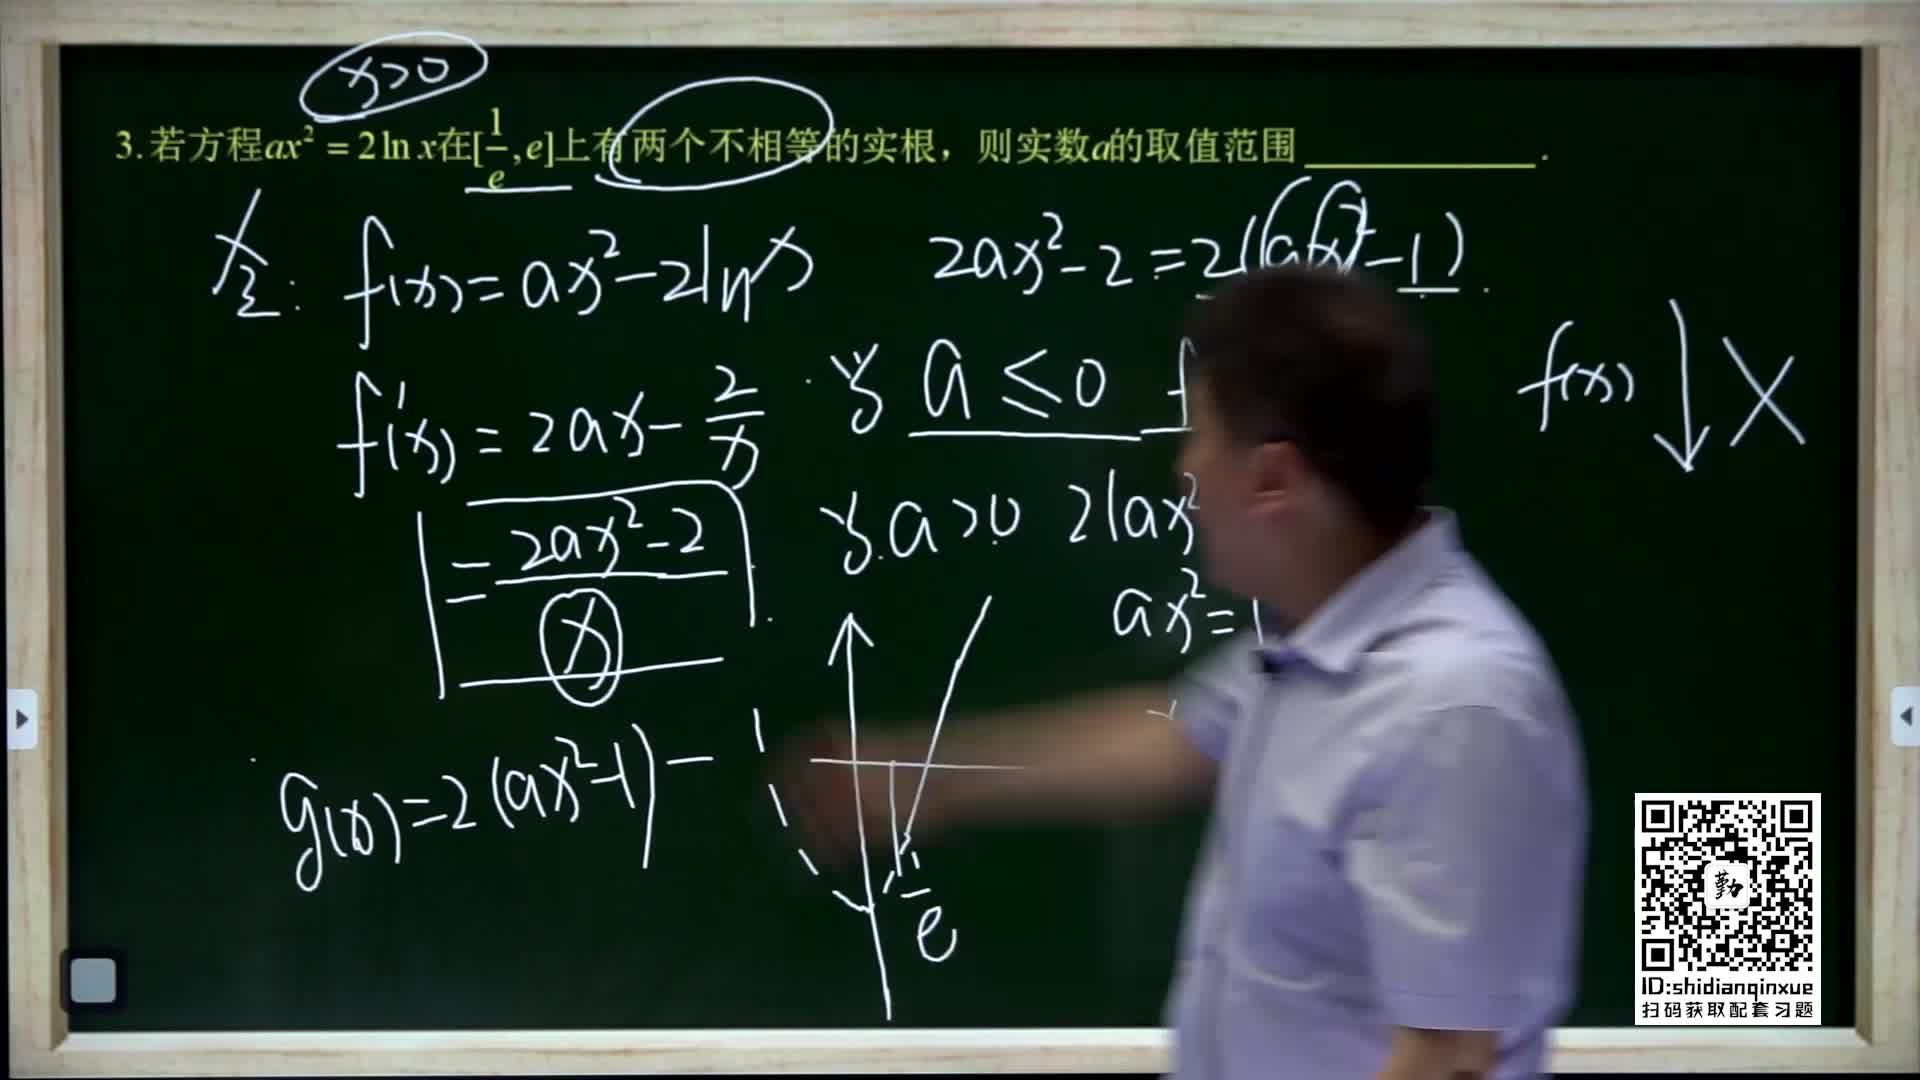 x>0
3.若方程ax²=2lnx在[1/e,e]上有两个不相等的实根，则实数a的取值范围____________.
全: f(x)=ax²-2lnx
2ax²-2=2(ax²-1).
f'(x)=2ax-2/x
a≤0 f
f(x)↓
=2ax²-2/x
a>0 2(ax²
ax²=1
g(x)=2(ax²-1)
1/e
勤
ID:shidianqinxue
扫码获取配套习题